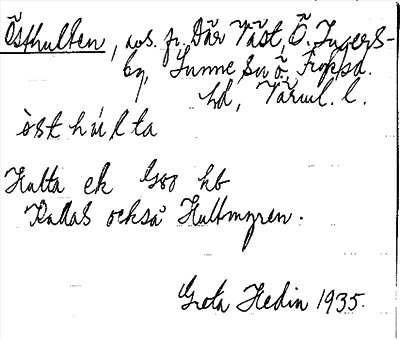 Östhulten, avs. fr. Där Väst, Ö. Ingers-
by, Sunne sn Ö, Fryksd.
hd, Värml. l.
òst húlta
Hulta ek 1:800 kb
Kallas också Hultmyren.
Greta Hedin 1935.